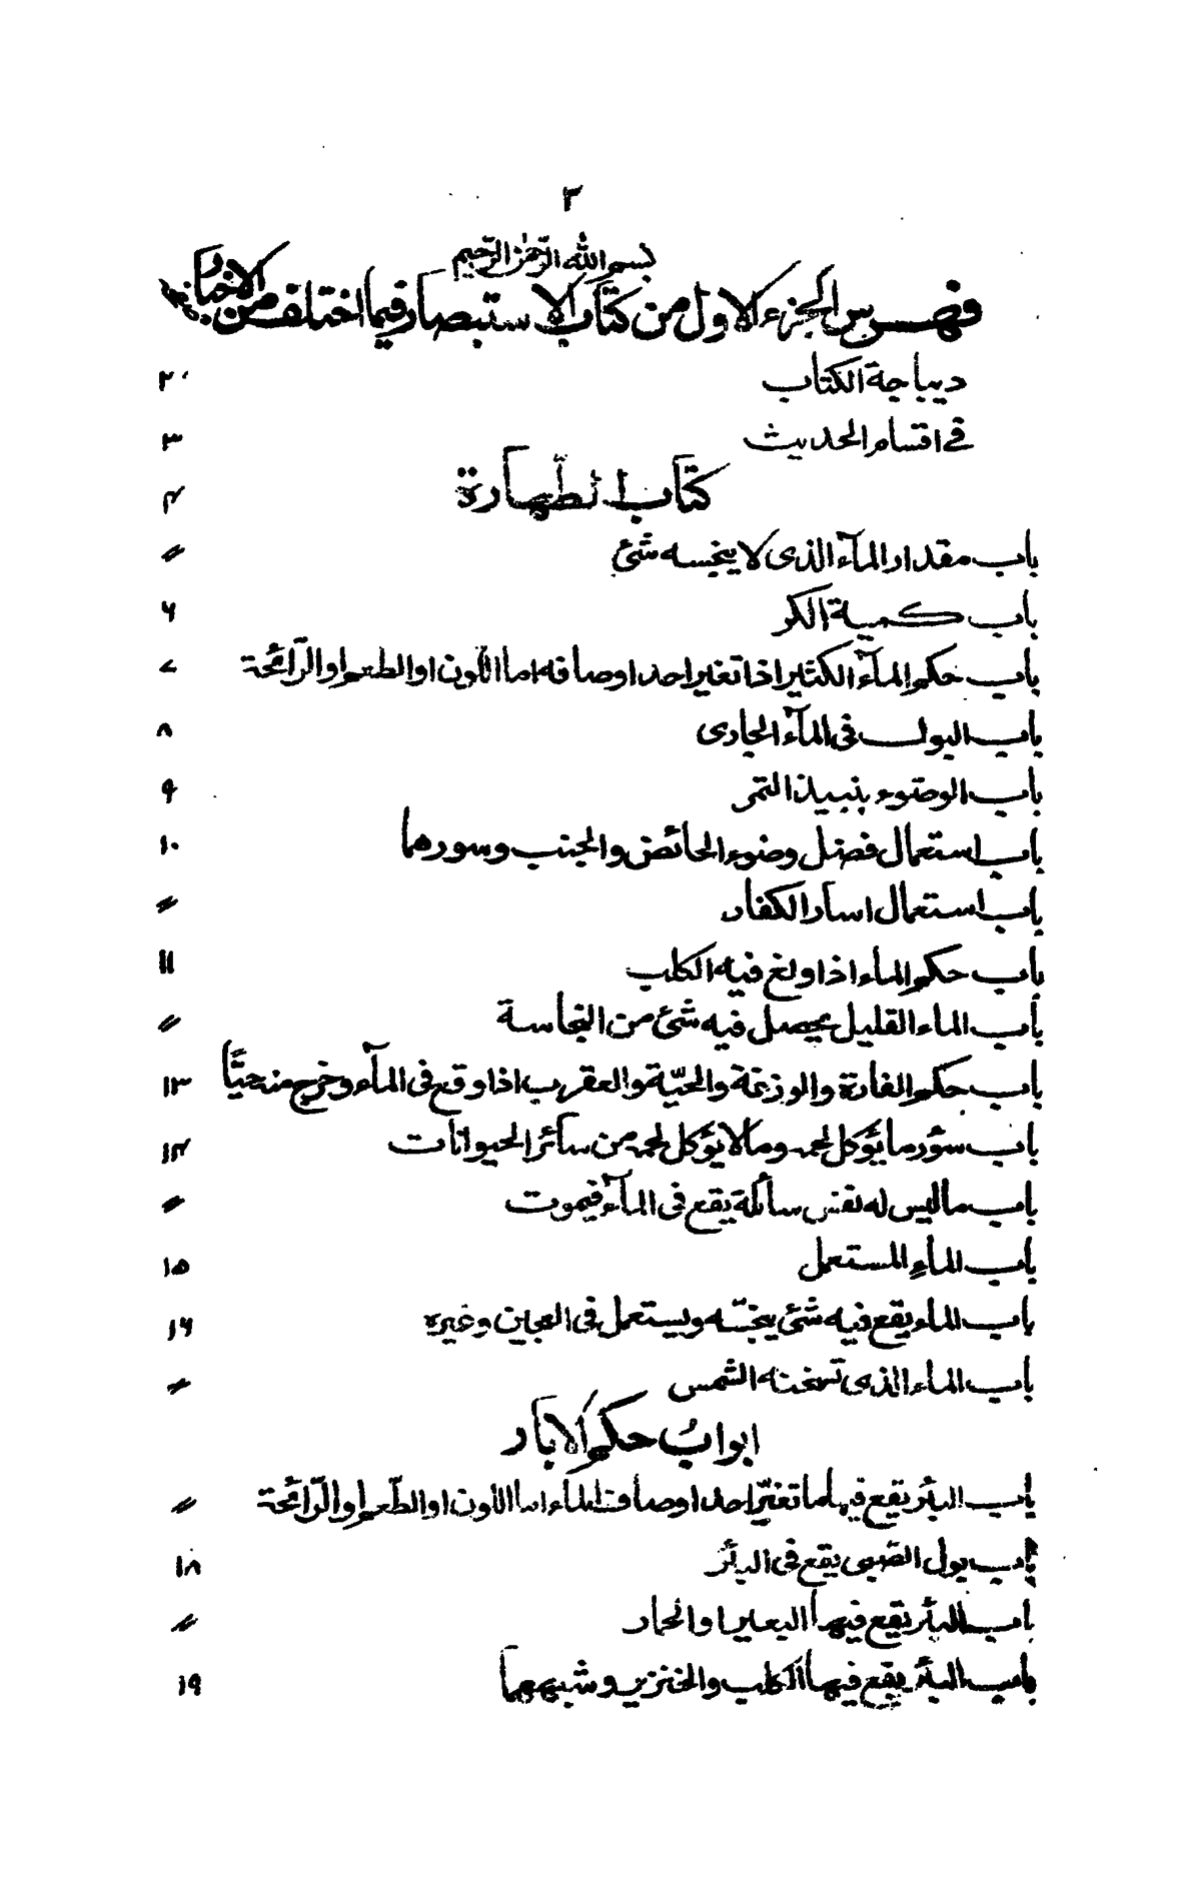 ٣
بسم الله الرحمن الرحيم
فهرس الجزء الاول من كتاب الاستبصار فيما اختلف من الاخبار
ديباجة الكتاب ٢
في اقسام الحديث ٣
كتاب الطهارة ۴
باب مقدار المآء الذى لا ينجسه شئ 〃
باب كمية الكر ۶
باب حكم المآء الكثير اذا تغير احد اوصافه اما اللون او الطعم او الرّائحة ٧
باب البول فى المآء الجارى ٨
باب الوضوء بنبيذ التمر ٩
باب استعمال فضل وضوء الحائض والجنب وسورهما ١٠
باب استعمال اسار الكفار 〃
باب حكم الماء اذا ولغ فيه الكلب ١١
باب الماء القليل يحصل فيه شئ من النجاسة 〃
باب حكم الفارة والوزغة والحيّة والعقرب اذا وقع فى المآء وخرج منه حيًّا ١٣
باب سؤر ما يؤكل لحمه وما لا يؤكل لحمه من سائر الحيوانات ١۴
باب ما ليس له نفس سائلة يقع فى المآء فيموت 〃
باب الماءِ المستعمل ١۵
باب الماء يقع فيه شئ ينجّسه ويستعمل فى العجين وغيره ١۶
باب الماء الذى تسخنه الشمس 〃
ابواب حكم الابار
باب البئر يقع فيها ما تغيّر احد اوصاف الماء اما اللون او الطّعم او الرّائحة 〃
باب بول الصّبى يقع فى البئر ١٨
باب البئر يقع فيها البعير او الحمار 〃
باب البئر يقع فيها الكلب والخنزير وشبههما ١٩